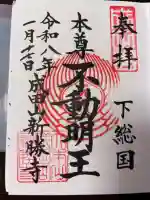 奉拝
下総国
本尊不動明王
令和八年
一月十一日
成田山新勝寺